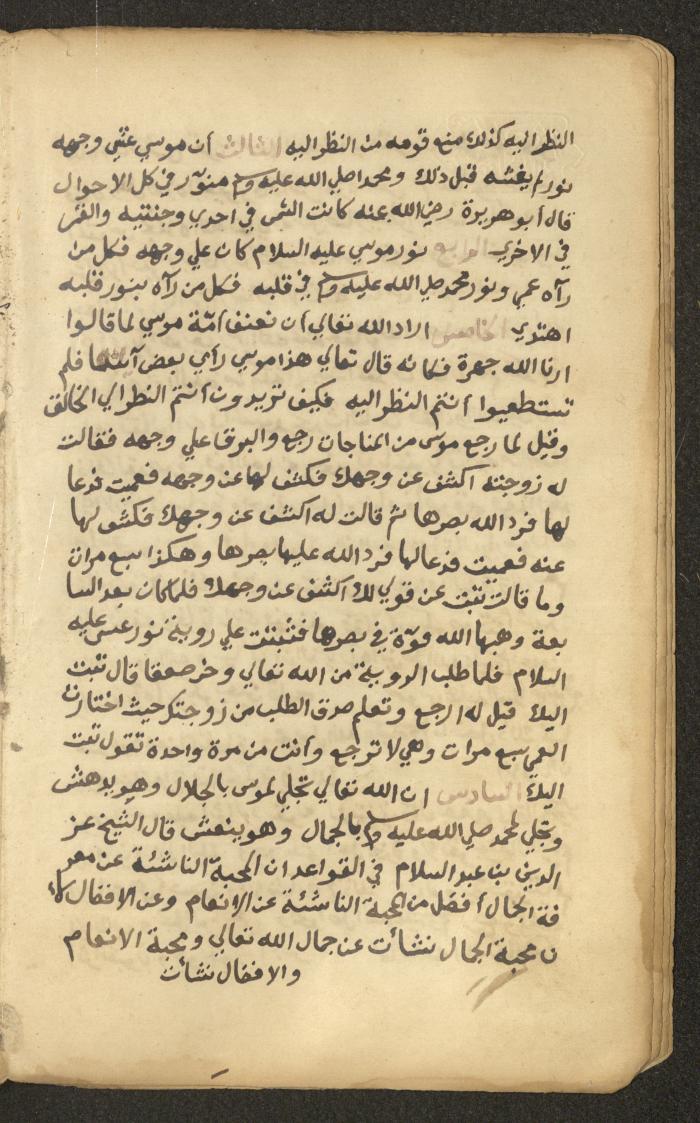 النظر اليه كذلك منع قومه من النظر اليه الثالث أن موسي غشي وجهه
نور لم يغشه قبل ذلك ومحمد اصلي الله عليه وسلم منوّر في كل الاحوال
قال أبو هريرة رضي الله عنه كانت الشمس في احدي وجنتيه والقمر
في الاخري الرابع نور موسي عليه السلام كان علي وجهه فكل من
رآه عمي ونور محمد صلي الله عليه وسلم في قلبه فكل من رآه بنور قلبه
اهتدي الخامس اراد الله تعالي أن تعنف أمّة موسي لما قالوا
ارنا الله جهرة فكانه قال تعالي هذا موسي رأي بعض فلم
تستطعيوا أنتم النظر اليه فكيف تريدون أنتم النظر الي الخالق
وقيل لما رجع موسى من المناجات رجع والبرقا علي وجهه فقالت
له زوجته اكشف عن وجهك فكشف لها عن وجهه فعميت فدعا
لها فرد الله بصرها ثم قالت له اكشف عن وجهك فكشف لها
عنه فعميت فدعا لها فرد الله عليها بصرها وهكذا سبع مرات
وما قالت تبت عن قولي لك اكشف عن وجهك فلما كان بعد السا
بعة وهبها الله قوّة في بصرها فثبتت علي روية نور عليه
السلام فلما طلب الروية من الله تعالي وخر صعقا قال تبت
اليك قيل له ارجع وتعلم صدق الطلب من زوجتك حيث اختارت
العمي سبع مرات وهي لا ترجع وأنت من مرة واحدة تقول تبت
اليك السادس ان الله تعالي تجلي لموسى بالجلال وهو يدهش
وتجلي لمحمد صلي الله عليه وسلم بالجمال وهو ينعش قال الشيخ عز
الدين بن عبد السلام في القواعد ان المحبة الناشئة عن معر
فة الجمال أفضل من المحبة الناشئة عن الانعام وعن الافضال لا
ن محبة الجمال نشأت عن جمال الله تعالي ومحبة الانعام
والافضال نشأت